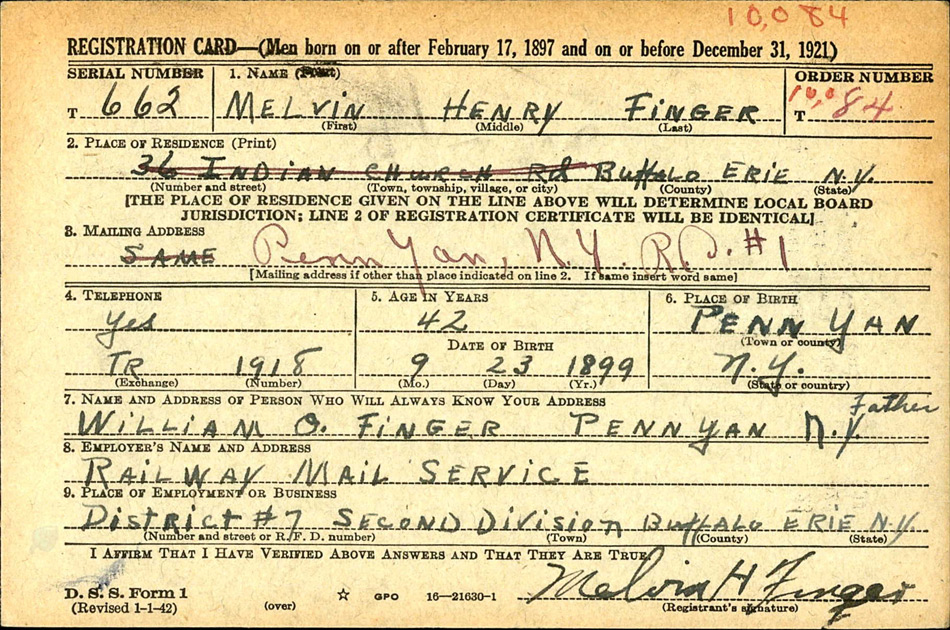 10,084
REGISTRATION CARD—(Men born on or after February 17, 1897 and on or before December 31, 1921)
SERIAL NUMBER 1. NAME (Print) ORDER NUMBER
T 662 MELVIN HENRY FINGER T 10,084
(First) (Middle) (Last)
2. PLACE OF RESIDENCE (Print)
36 INDIAN CHURCH Rd Buffalo ERIE N.Y.
(Number and street) (Town, township, village, or city) (County) (State)
[THE PLACE OF RESIDENCE GIVEN ON THE LINE ABOVE WILL DETERMINE LOCAL BOARD
JURISDICTION; LINE 2 OF REGISTRATION CERTIFICATE WILL BE IDENTICAL]
3. MAILING ADDRESS
SAME Penn Yan, N.Y. R.D. #1
[Mailing address if other than place indicated on line 2. If same insert word same]
4. TELEPHONE 5. AGE IN YEARS 6. PLACE OF BIRTH
Yes 42 PENN YAN
DATE OF BIRTH (Town or county)
TR 1918 9 23 1899 N.Y.
(Exchange) (Number) (Mo.) (Day) (Yr.) (State or country)
7. NAME AND ADDRESS OF PERSON WHO WILL ALWAYS KNOW YOUR ADDRESS Father
WILLIAM O. FINGER PENN YAN N.Y.
8. EMPLOYER'S NAME AND ADDRESS
RAILWAY MAIL SERVICE
9. PLACE OF EMPLOYMENT OR BUSINESS
District #7 SECOND DIVISION Buffalo ERIE N.Y.
(Number and street or R. F. D. number) (Town) (County) (State)
I AFFIRM THAT I HAVE VERIFIED ABOVE ANSWERS AND THAT THEY ARE TRUE.
Melvin H Finger
D. S. S. Form 1
(Revised 1-1-42) (over) ☆ GPO 16—21630-1 (Registrant's signature)